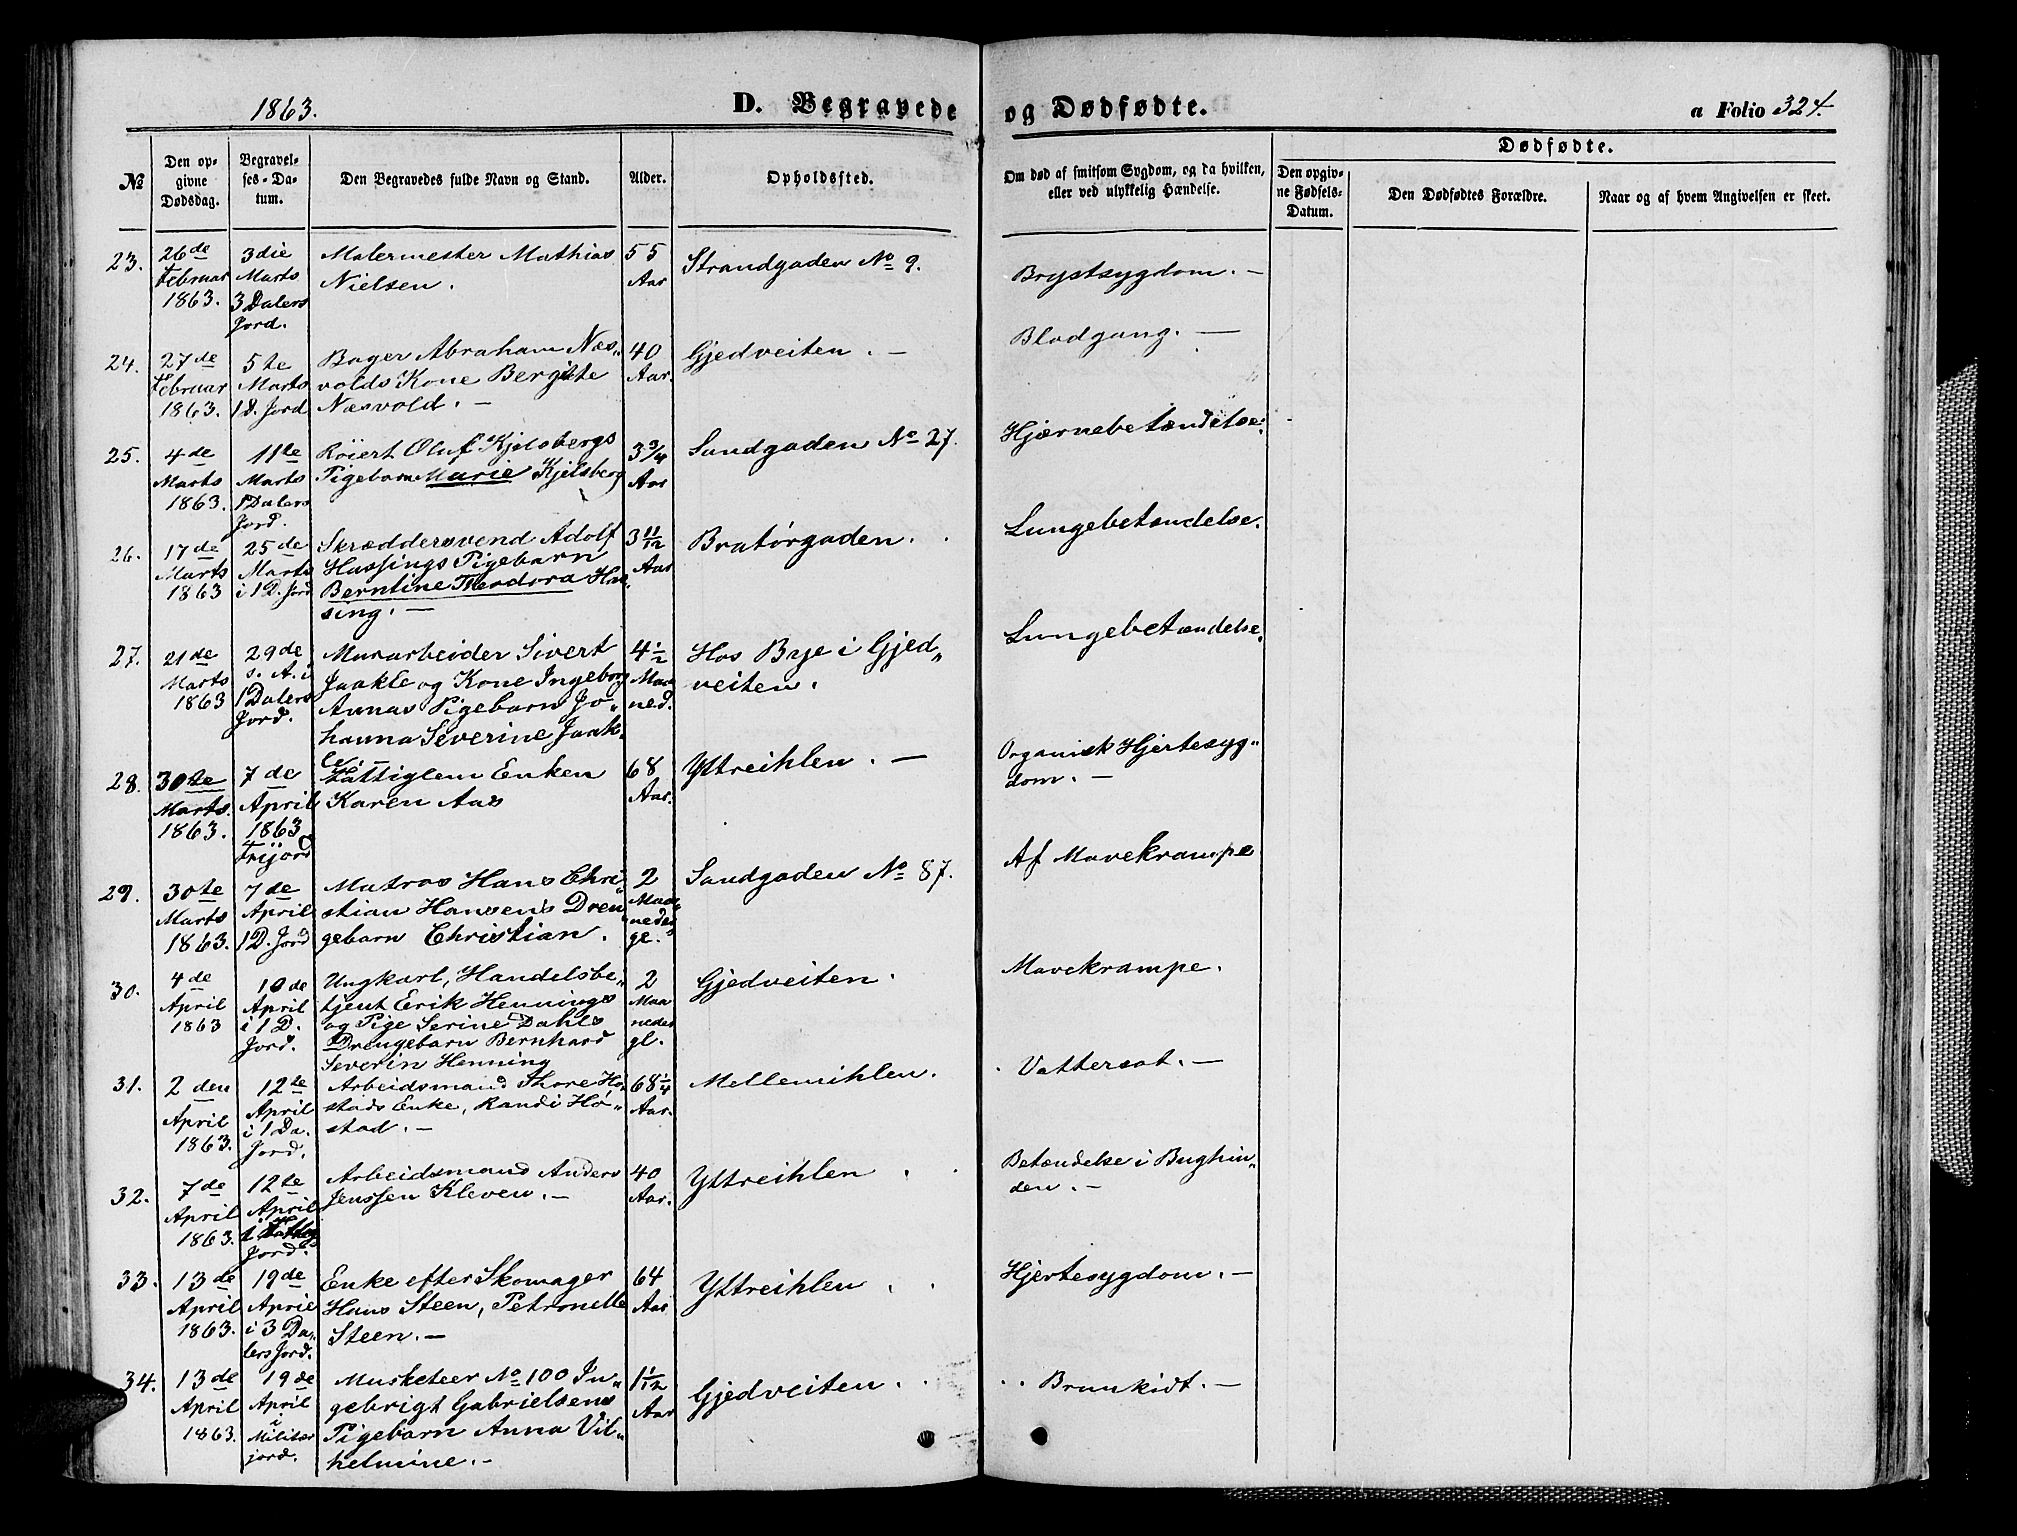 1863.
D. Begravede og Dødfødte.
a Folio 324.
№
Den opgivne Dødsdag.
Begravelses-Datum.
Den Begravedes fulde Navn og Stand.
Alder.
Opholdssted.
Om død af smitsom Sygdom, og da hvilken, eller ved ulykkelig Hændelse.
Dødfødte.
Den opgivne Fødsels-Datum.
Den Dødfødtes Forældre.
Naar og af hvem Angivelsen er skeet.
23.
26de Februar 1863.
3die Marts 3 Dalers Jord.
Malermester Mathias
Nielsen.
55 Aar
Strandgaden No 9.
Brystsygdom. —
24.
27de Februar 1863.
5te Marts 1 D. Jord
Bager Abraham Næs„
volds Kone Bergitte
Næsvold. —
40 Aar.
Gjedveiten. —
Blodgang. —
25.
4de Marts 1863.
11te Marts 1 Dalers Jord.
Röiert Oluf Kjelsbergs
Pigebarn Marie Kjelsberg
3 3/4 Aar
Sandgaden No 27.
Hjernebetændelse.
26.
17de Marts 1863
25de Marts i 1 D. Jord
Skræddersvend Adolf
Hassings Pigebarn
Berntine Theodora Has„
sing. —
3 11/12 Aar
Bratörgaden.
Lungebetændelse.
27.
21de Marts 1863
29de s. A. i 1 Dalers Jord.
Murarbeider Sivert
Jaakle og Kone Ingeborg
Annas Pigebarn Jo„
hanna Severine Jaak„
le. —
4 1/2 Maaned.
Hos Brye i Gjed„
veiten.
Lungebetændelse.
28.
30te Marts. 1863.
7de April 1863 Frijord
Fattiglem Enken
Karen Aas
68 Aar.
Yttreihlen. —
Organisk Hjertesyg„
dom. —
29.
30te Marts 1863.
7de April 1 D. Jord
Matros Hans Chri„
stian Hansens Dren„
gebarn Christian.
2 Maanedergl.
Sandgaden No 87.
Af Mavekrampe
30.
4de April 1863
10de April i 1 D. Jord.
Ungkarl, Handelsbe„
tjent Erik Hennings
og Pige Serine Dahls
Drengebarn Bernhard
Severin Henning
2 Maaneder gl.
Gjedveiten.
Mavekrampe.
31.
2den April 1863.
12te April i 1 Da. Jord.
Arbeidsmand Thore Hö„
stads Enke, Randi Hö„
stad. —
68 1/4 Aar.
Mellemihlen.
Vattersot. —
32.
7de April 1863.
12te April i Jord.
Arbeidsmand Anders
Jenssen Kleven. —
40 Aar.
Yttreihlen
Betændelse i Bughin„
den. —
33.
13de April 1863.
19de April i 3 Da„lers Jord.
Enke efter Skomager
Hans Steen, Petronelle
Steen. —
64 Aar
Yttreihlen
Hjertesygdom. —
34.
13de April 1863.
19de April i Militær jord.
Musketeer No 100 In„
gebrigt Gabrielsens
Pigebarn Anna Vil„
helmine. —
1 1/12 Aar
Gjedveiten.
Brunkidt. —